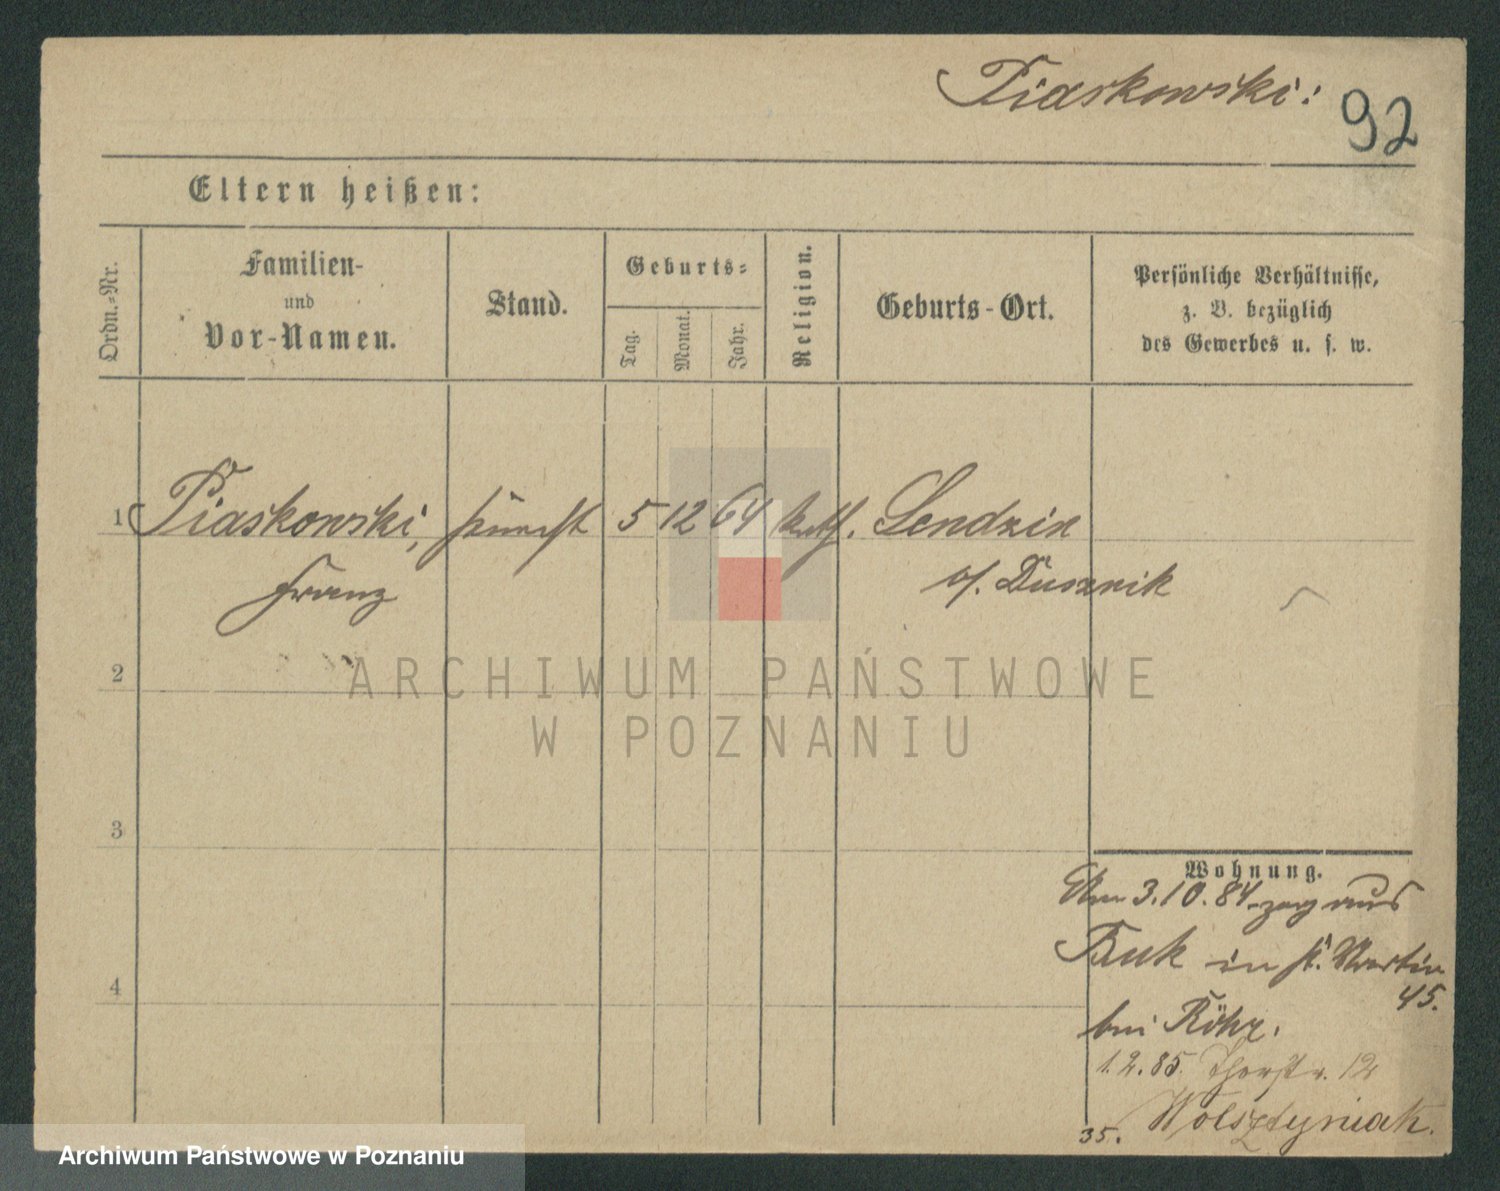 Piaskowski:
92
Eltern heißen:
Ordn.-Nr.
Familien-
und
Vor-Namen.
Stand.
Geburts-
Tag.
Monat.
Jahr.
Religion.
Geburts-Ort.
Persönliche Verhältnisse,
z. B. bezüglich
des Gewerbes u. s. w.
1 Piaskowski, 5 12 64 kath. Sendzin
Franz b/. Dusznik
2
ARCHIWUM PAŃSTWOWE
W POZNANIU
3
Wohnung.
Am 3.10.84 zog aus
Buk in St. Martin
45.
bei Röhr.
1.2.85. Thorstr. 12
Wolsztyniak.
35.
4
Archiwum Państwowe w Poznaniu